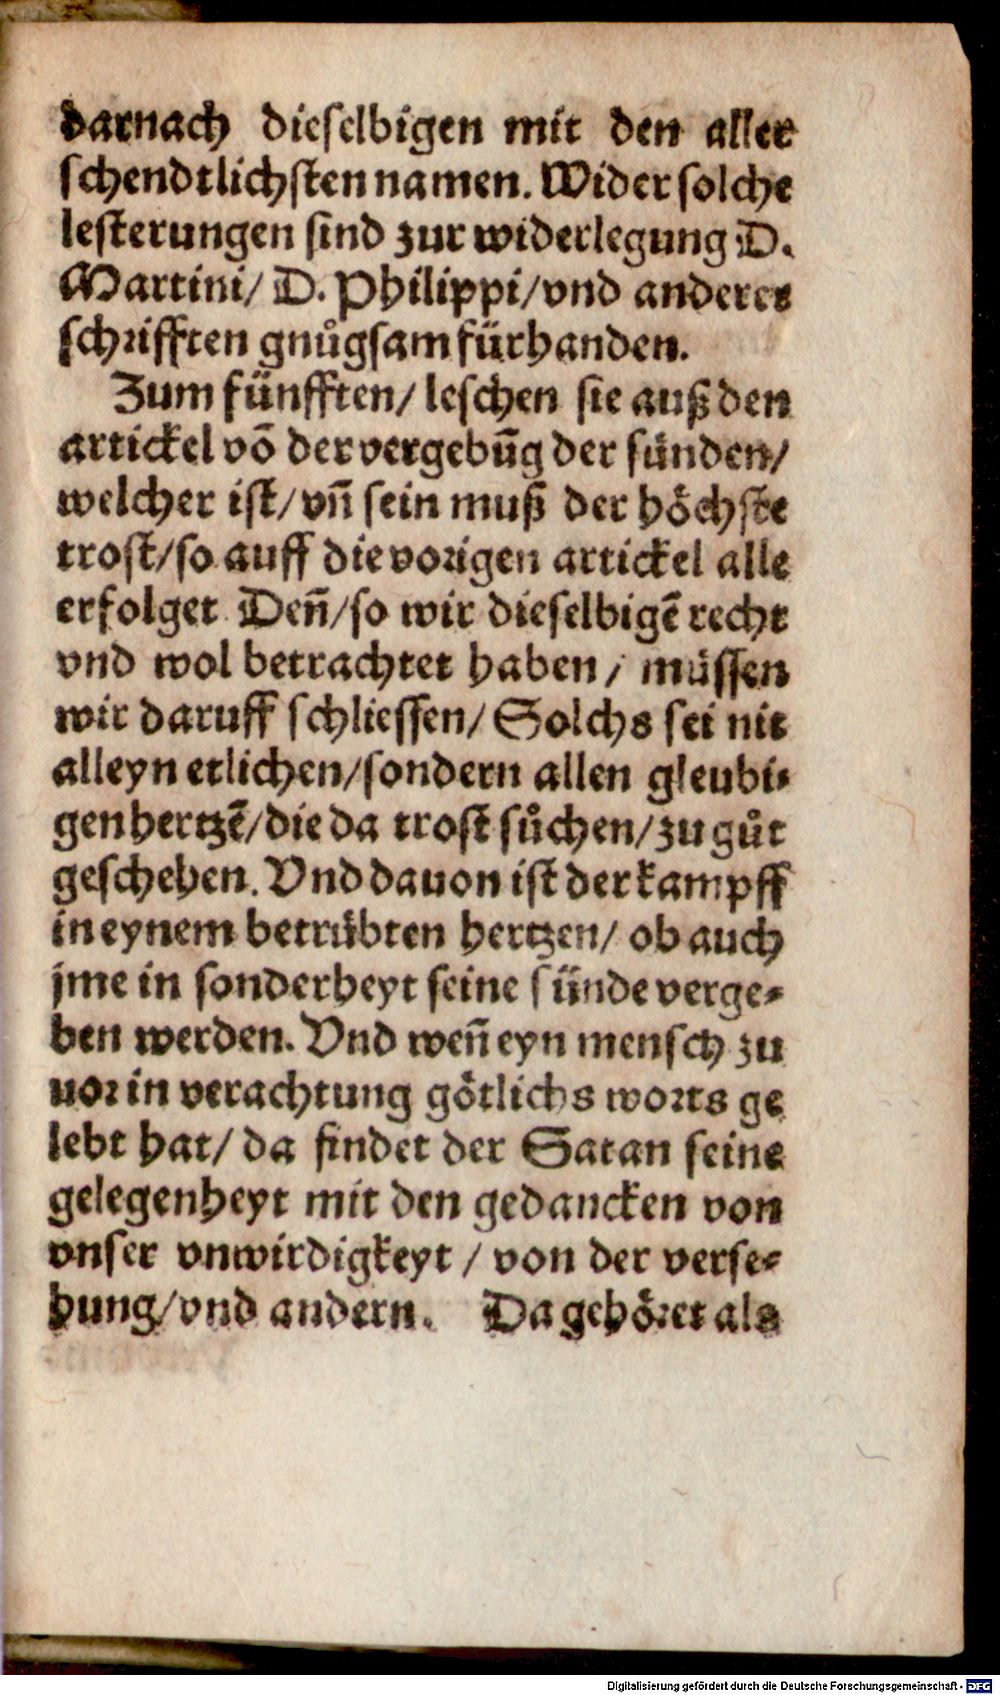 darnach dieselbigen mit den aller
schendtlichsten namen. Wider solche
lesterungen sind zur widerlegung D.
Martini/ D. Philippi/vnd anderer
schrifften gnůgsam fürhanden.
Zum fünfften/ leschen sie auß den
artickel võ der vergebũg der sünden/
welcher ist/ vñ sein muß der höchste
trost/so auff die vorigen artickel alle
erfolget Deñ/so wir dieselbigẽ recht
vnd wol betrachtet haben / müssen
wir daruff schliessen/ Solchs sei nit
alleyn etlichen/sondern allen gleubi-
gen hertzẽ/die da trost sůchen/zu gůt
geschehen. Vnd dauon ist der kampff
in eynem betrübten hertzen/ ob auch
jme in sonderheyt seine sünde verge-
ben werden. Vnd weñ eyn mensch zu
uor in verachtung götlichs worts ge
lebt hat/ da findet der Satan seine
gelegenheyt mit den gedancken von
vnser vnwirdigkeyt / von der verse-
hung/vnd andern. Da gehöret als
Digitalisierung gefördert durch die Deutsche Forschungsgemeinschaft - DFG